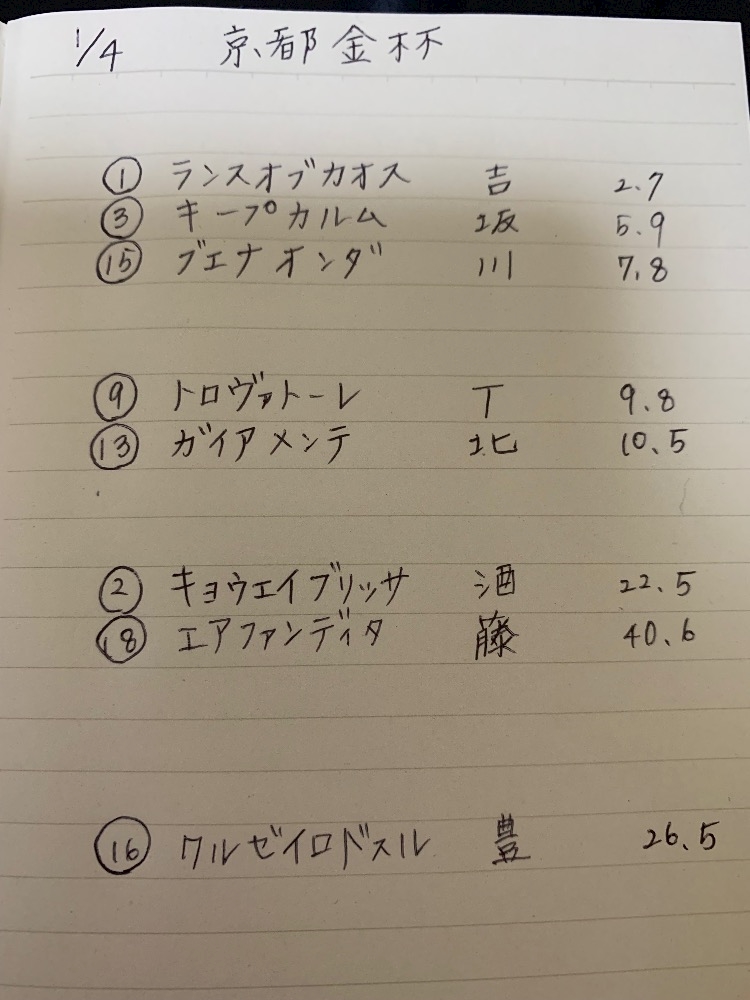 1/4 京都金杯
① ランスオブカオス 吉 2.7
③ キープカルム 坂 5.9
⑮ ブエナオンダ 川 7.8
⑨ トロヴァトーレ 丁 9.8
⑬ ガイアメンテ 北 10.5
② キョウエイブリッサ 酒 22.5
⑱ エアファンディタ 藤 40.6
⑯ クルゼイロドスル 豊 26.5